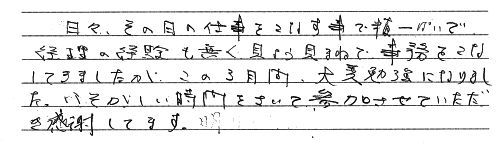 日々、その日の仕事をこなす事で精一ぱいで
経理の経験も無く見よう見まねで事務をこな
してきましたが、この3月間、大変勉強になりまし
た。いそがしい時間をさいて参加させていただ
き感謝してます。